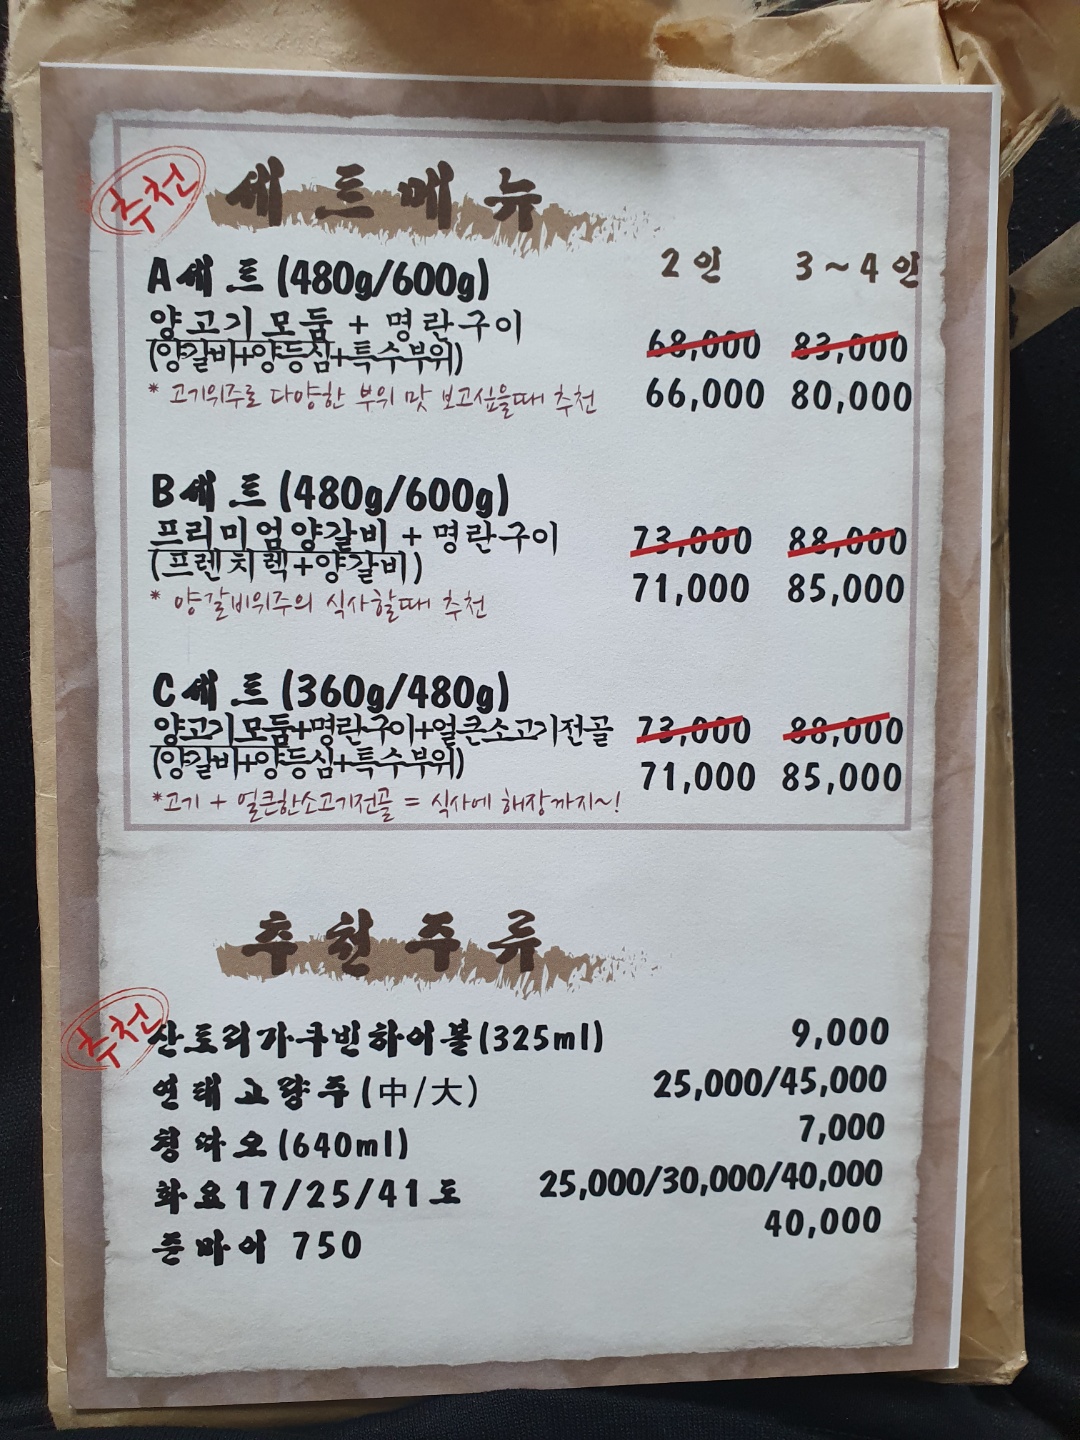 추천
세트메뉴
2인 3~4인
A세트(480g/600g)
양고기모둠 + 명란구이 68,000 83,000
(양갈비+양등심+특수부위)
* 고기위주로 다양한 부위 맛 보고싶을때 추천 66,000 80,000
B세트(480g/600g)
프리미엄양갈비 + 명란구이 73,000 88,000
(프렌치렉+양갈비)
* 양갈비위주의 식사할때 추천 71,000 85,000
C세트(360g/480g)
양고기모둠+명란구이+얼큰소고기전골 73,000 88,000
(양갈비+양등심+특수부위) 71,000 85,000
*고기 + 얼큰한소고기전골 = 식사에 해장까지~!
추천주류
추천
산토리가쿠빈하이볼(325ml) 9,000
연태고량주(中/大) 25,000/45,000
칭따오(640ml) 7,000
화요17/25/41도 25,000/30,000/40,000
준마이 750 40,000